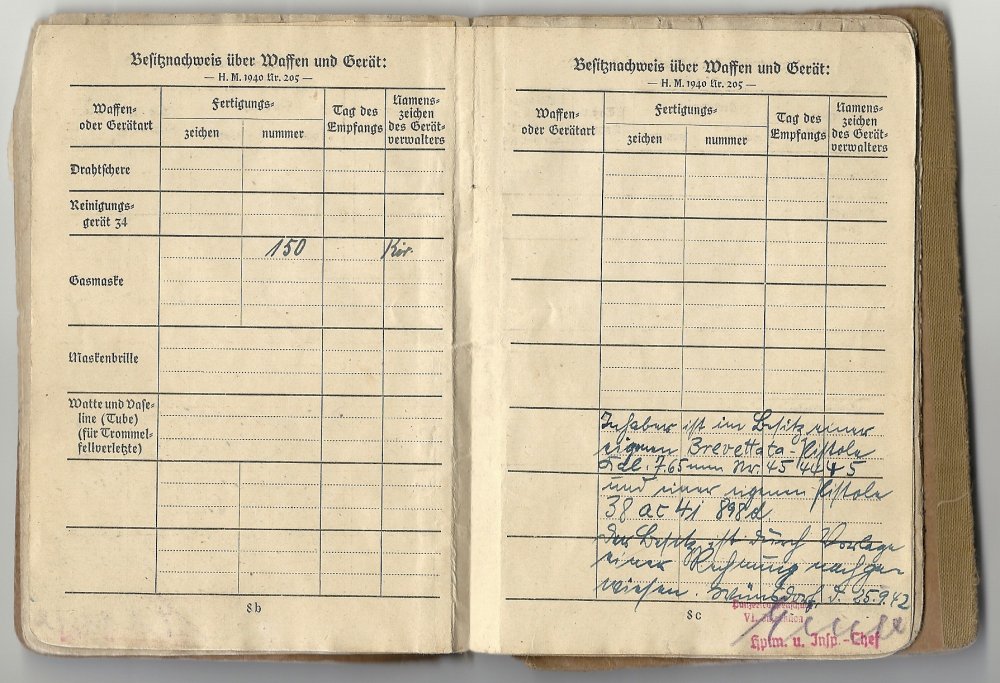 Besitznachweis über Waffen und Gerät:
— H. M. 1940 Nr. 205 —
Waffen- oder Gerätart
Fertigungs-
zeichen
nummer
Tag des Empfangs
Namens-
zeichen
des Gerät-
verwalters
Drahtschere
Reinigungs-
gerät 34
150
Gasmaske
Maskenbrille
Watte und Vase-
line (Tube)
(für Trommel-
fellverletzte)
8b
Besitznachweis über Waffen und Gerät:
— H. M. 1940 Nr. 205 —
Waffen-
oder Gerätart
Fertigungs-
zeichen
nummer
Tag des
Empfangs
Namens-
zeichen
des Gerät-
verwalters
Inhaber ist im Besitz einer
eigenen Brevettata-Pistole
Kal. 7,65 mm Nr. 454445
und einer eigenen Pistole
38 ac 41 898d
Der Besitz ist durch Vorlage
einer Rechnung nachge-
wiesen. Wünsdorf, d. 25.9.42
8c
Hptm. u. Insp.-Chef